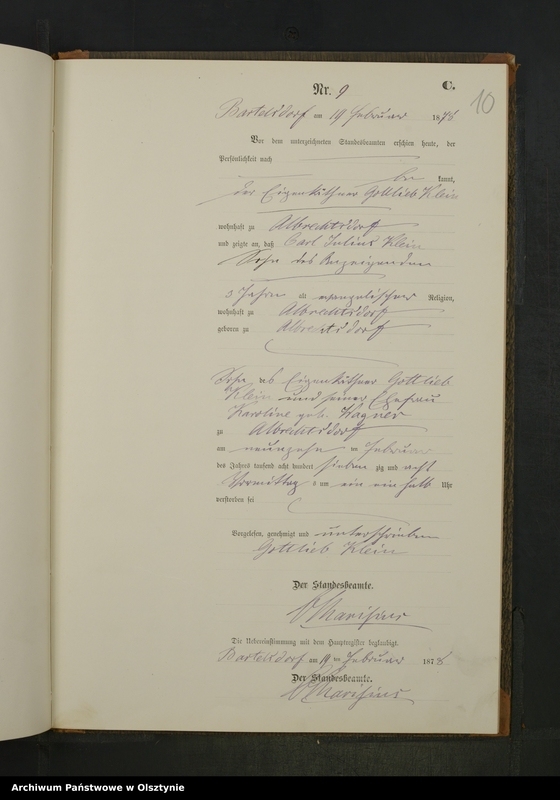 Nr. 9
C.
10
Bartelsdorf am 19 Februar 1878
Vor dem unterzeichneten Standesbeamten erschien heute, der
Persönlichkeit nach
be kannt,
der Eigenkäthner Gottlieb Klein
wohnhaft zu Albrechtsdorf
und zeigte an, daß Carl Julius Klein
Sohn des Anzeigenden
3 Jahre alt evangelischer Religion,
wohnhaft zu Albrechtsdorf
geboren zu Albrechtsdorf
Sohn des Eigenkäthner Gottlieb
Klein und seiner Ehefrau
Karoline geb. Wagner
zu Albrechtsdorf
am neunzehn ten Februar
des Jahres tausend acht hundert sieben zig und acht
Vormittag s um ein ein halb Uhr
verstorben sei
Vorgelesen, genehmigt und unterschrieben
Gottlieb Klein
Der Standesbeamte.
Die Uebereinstimmung mit dem Hauptregister beglaubigt.
Bartelsdorf am 19 ten Februar 1878
Der Standesbeamte.
Archiwum Państwowe w Olsztynie